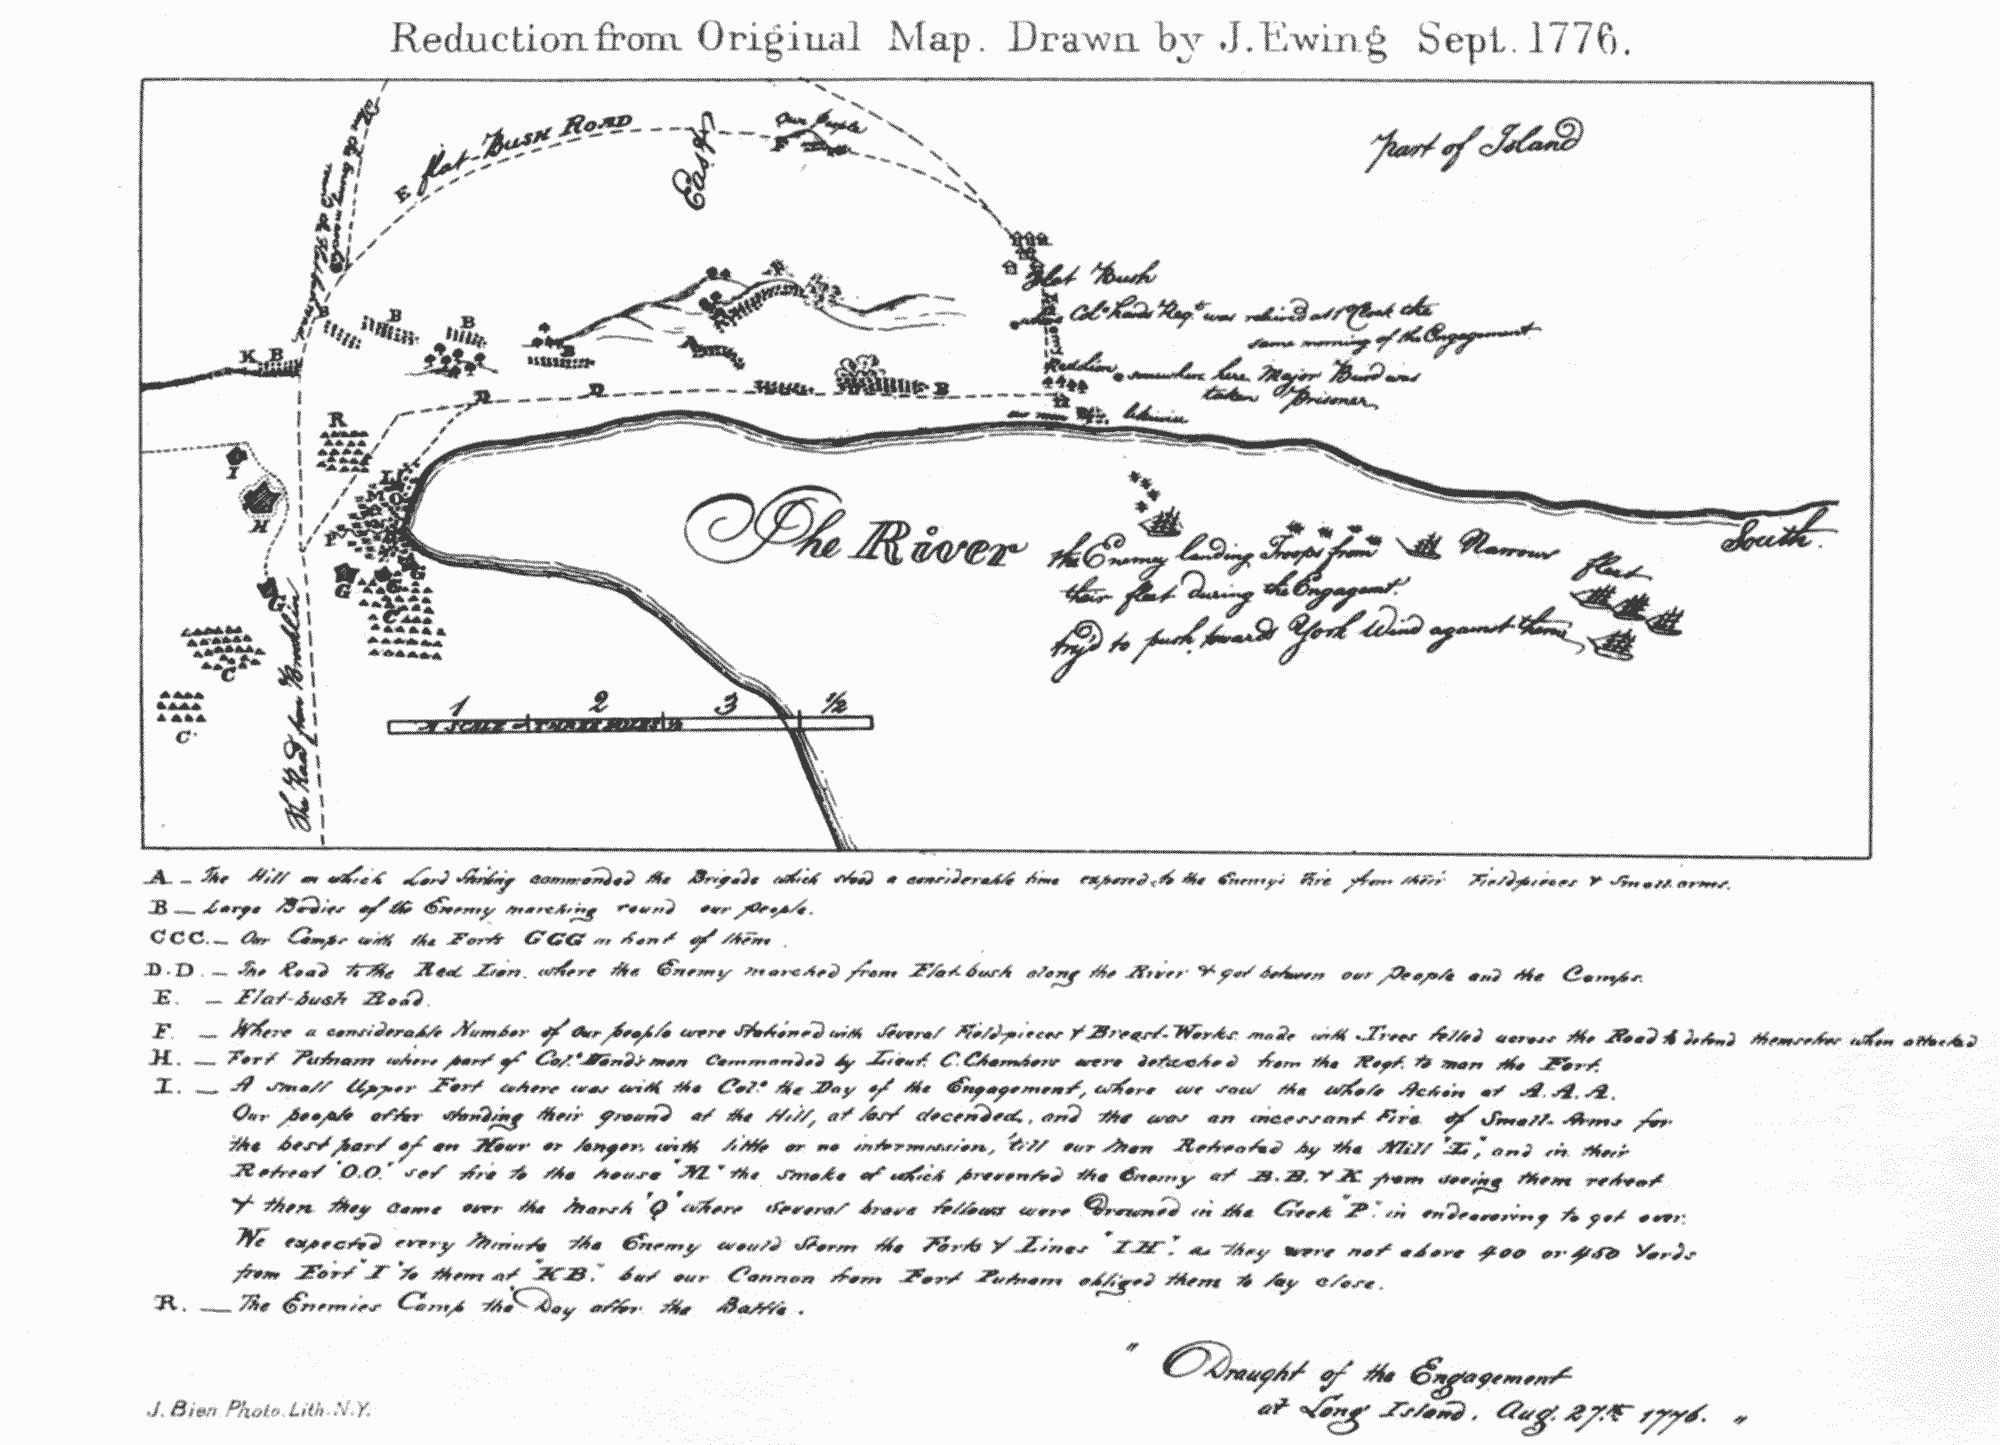 Reduction from Original Map. Drawn by J. Ewing Sept. 1776.
Flat-Bush Road
E
East
Our People
F
Part of Island
Flat Bush
Col. Hands Reg.t was relieved at 1 Clock the
same morning of the Engagement
B
B
B
K B
B
A
Redlion
somewhere here Major Burd was
taken Prisoner
D
D
B
likewise
R
I
L
M
O
H
P
G
G
G
C
C
C
The River
South
the Enemy landing Troops from
Narrow
fleet
their fleet during the Engagemt.
try'd to push towards York Wind against them
The Road from Brooklin
1 2 3 1/2
A SCALE of THREE MILES ½
A – The Hill on which Lord Stirling commanded the Brigade which stood a considerable time exposed to the Enemy's Fire from their Fieldpieces & Small arms.
B – Large Bodies of the Enemy marching round our people.
CCC. – Our Camps with the Forts GGG in front of them.
D. D. – The Road to the Red Lion where the Enemy marched from Flat-bush along the River & got between our People and the Camps.
E. – Flat-bush Road.
F. – Where a considerable Number of our people were stationed with several Field-pieces & Breast-Works made with Trees felled across the Road to defend themselves when attacked
H. – Fort Putnam where part of Col.o Hand's men commanded by Lieut. C. Chambers were detached from the Regt. to man the Fort.
I. – A small Upper Fort where was with the Col.o the Day of the Engagement, where we saw the whole Action at A. A. A.
Our people after standing their ground at the Hill, at last decended, and the was an incessant Fire of Small-Arms for
the best part of an Hour or longer, with little or no intermission, 'till our Men Retreated by the Mill "L", and in their
Retreat "O.O." set fire to the house "M." the smoke of which prevented the Enemy at B. B. & K from seeing them retreat
& then they came over the Marsh "Q" where several brave fellows were Drowned in the Creek "P". in endeavoring to get over.
We expected every Minute the Enemy would Storm the Forts & Lines "I H". as they were not above 400 or 450 Yards
from Fort "I" to them at "K B." but our Cannon from Fort Putnam obliged them to lay close.
R. – The Enemies Camp the Day after the Battle.
" Draught of the Engagement
at Long Island. Aug. 27.th 1776. "
J. Bien Photo. Lith. N.Y.